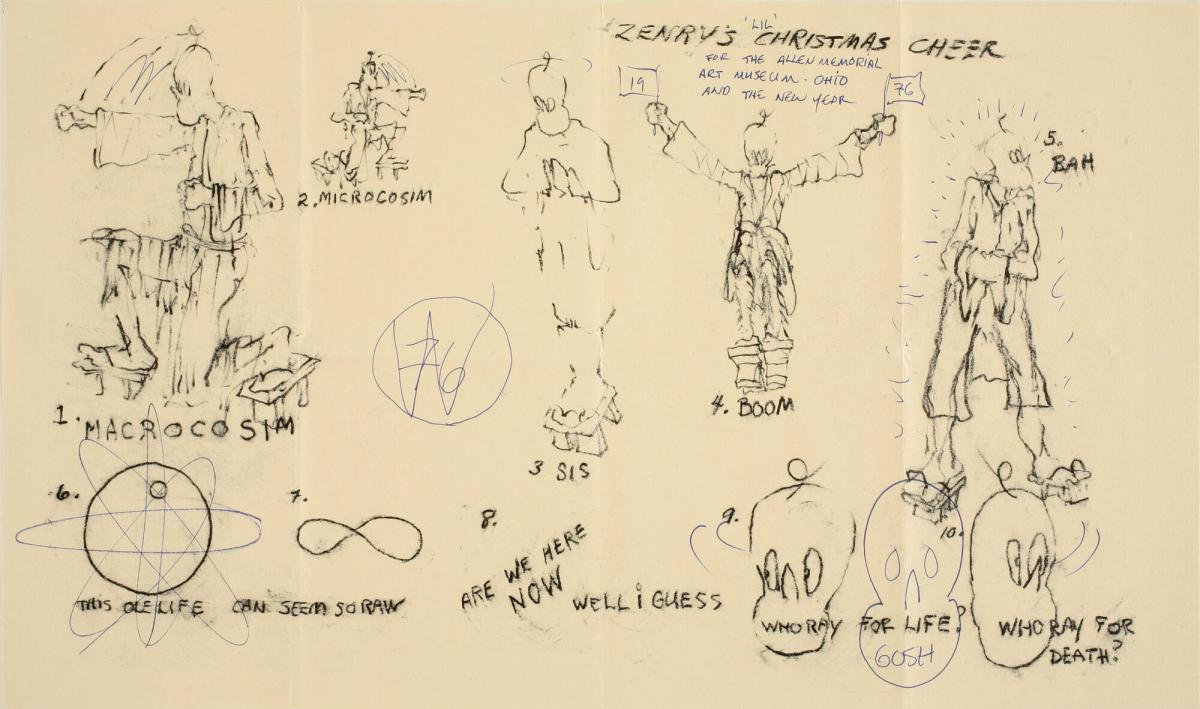 ZENRY'S 'LIL' CHRISTMAS CHEER
FOR THE ALLEN MEMORIAL
ART MUSEUM - OHIO
AND THE NEW YEAR
19
76
1. MACROCOSIM
2. MICROCOSIM
3 SIS
4. BOOM
5. BAH
76
6.
THIS OLE LIFE CAN SEEM SO RAW
7.
8.
ARE WE HERE
NOW
WELL i GUESS
9.
WHORAY FOR LIFE?
GOSH
10.
WHORAY FOR
DEATH?